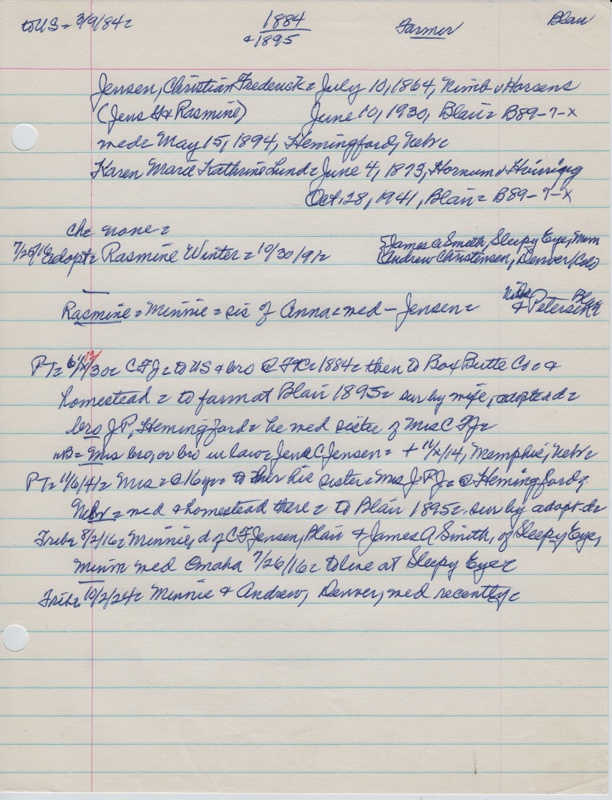 to US = 3/9/84 =
1884
+ 1895
Farmer
Blair
Jensen, Christian Frederick = July 10, 1864, Nimb v Horsens
(Jens & Rasmine) June 10, 1930, Blair = B89-7-X
med = May 15, 1894, Hemingford, Nebr =
Karen Marie Kathrine Lund = June 4, 1873, Hornum v
Oct. 28, 1941, Blair = B89-7-X
ch = none =
7/25/16 adopt = Rasmine Winter = 10/30/91 =
James A Smith, Sleepy Eye, Minn
Andrew Christensen, Denver, Colo
Rasmine = Minnie = sis of Anna = med - Jensen =
& Petersen
PT = C F J = to US & bro @ = 1884 = then to Box Butte Co = &
homestead = to farm at Blair 1895 = sur by wife, adopted d =
bro J P, Hemingford = he med sister of Mrs C F J =
NB = Mrs bro, or bro in law = Jens C Jensen = + 11/2/14, Memphis, Nebr =
PT = 11/6/41 = Mrs = @ 16 yr = to her his sister = Mrs J P J = @ Hemingford,
Nebr = med & homestead there = to Blair 1895 = sur by adopt d =
Trib = 8/2/16 = Minnie, d of C F Jensen, Blair & James A. Smith, of Sleepy Eye,
Minn med Omaha 7/26/16 = to live at Sleepy Eye =
Trib = 10/2/24 = Minnie & Andrew, Denver, med recently =